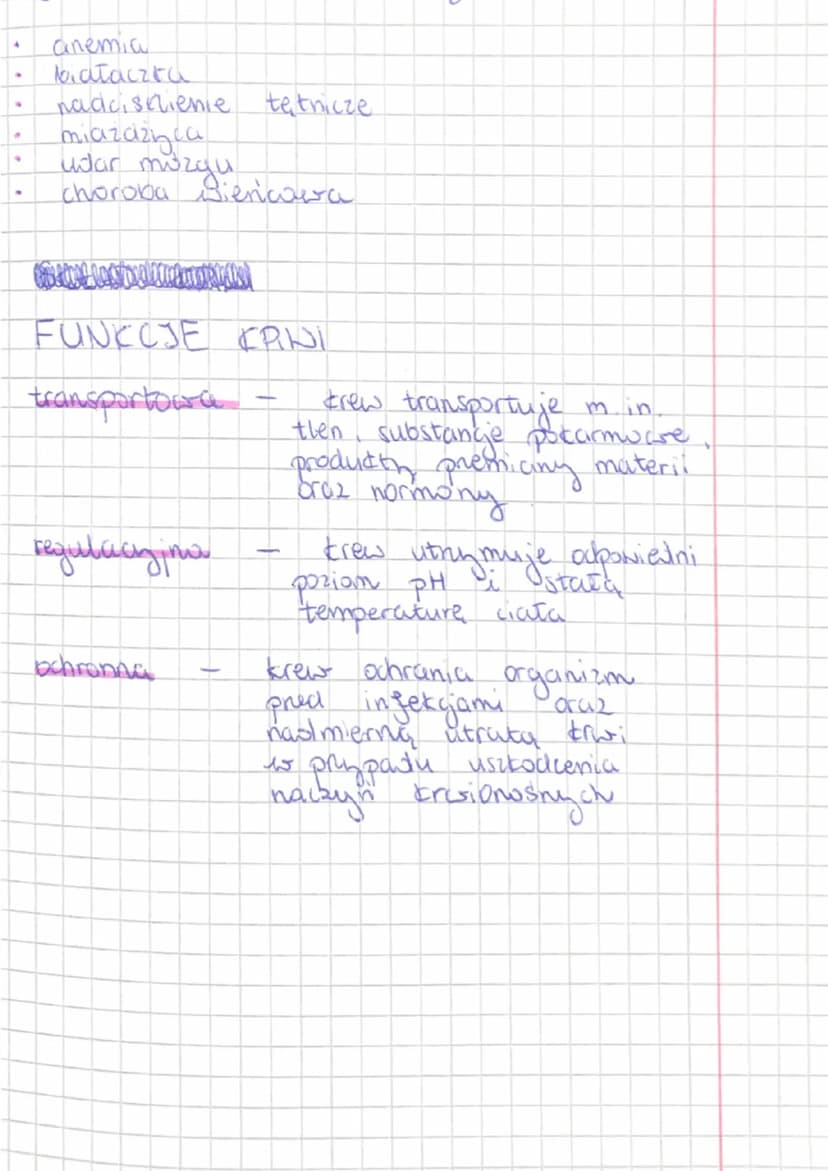 • anemia
• białaczka
• nadciśnienie tętnicze
• miażdżyca
• udar mózgu
• choroba wieńcowa
FUNKCJE KRWI
transportowa – krew transportuje m.in.
tlen, substancje pokarmowe,
produkty przemiany materii
oraz hormony
regulacyjna – krew utrzymuje odpowiedni
poziom pH i stałą
temperaturę ciała
ochronna – krew ochrania organizm
przed infekcjami oraz
nadmierną utratą krwi
w przypadu uszkodzenia
naczyń krwionośnych